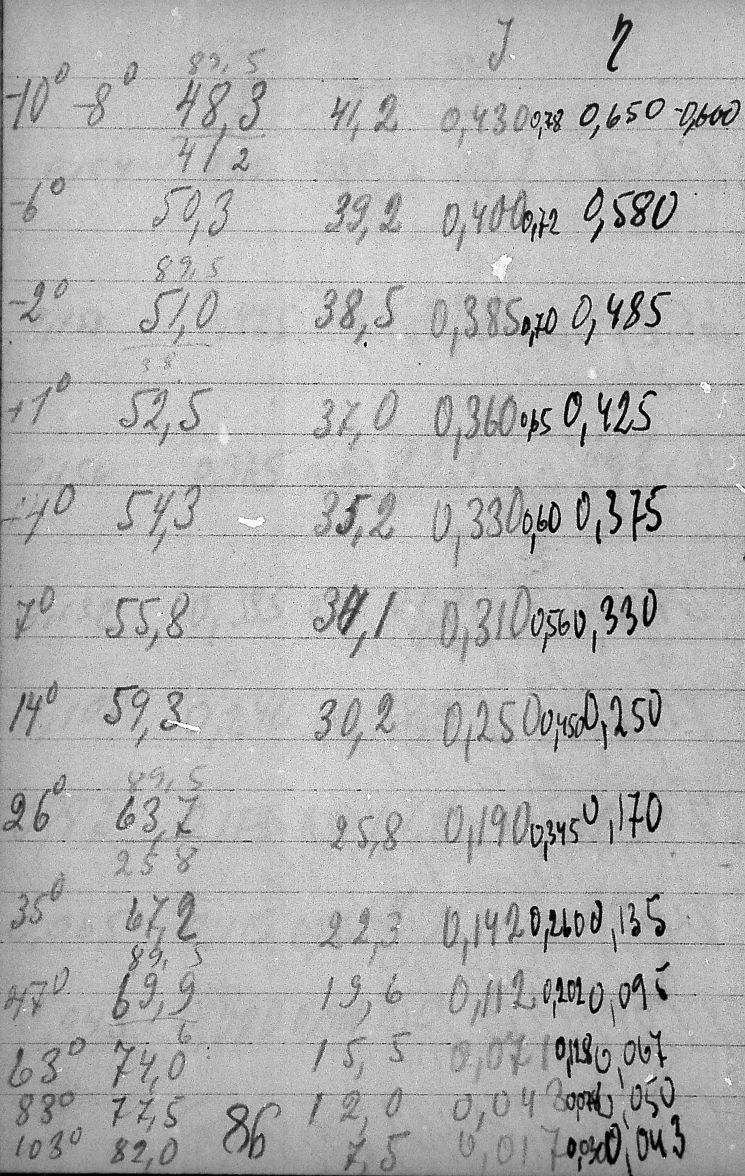 J η
89,5
-10° -8° 48,3 41,2 0,430 0,78 0,650 -0,600
41 2
-6° 50,3 39,2 0,400 0,72 0,580
89,5
-2° 51,0 38,5 0,385 0,70 0,485
38
+1° 52,5 37,0 0,360 0,65 0,425
+4° 54,3 35,2 0,330 0,60 0,375
7° 55,8 34,1 0,310 0,56 0,330
14° 59,3 30,2 0,250 0,450 0,250
89,5
26° 63,7 25,8 0,190 0,345 0,170
25 8
35° 67,2 22,3 0,142 0,260 0,135
89,5
47° 69,9 19,6 0,112 0,202 0,095
6
63° 74,0 15,5 0,071 0,128 0,067
83° 77,5 12,0 0,043 0,078 0,050
103° 82,0 86 7,5 0,017 0,030 0,043